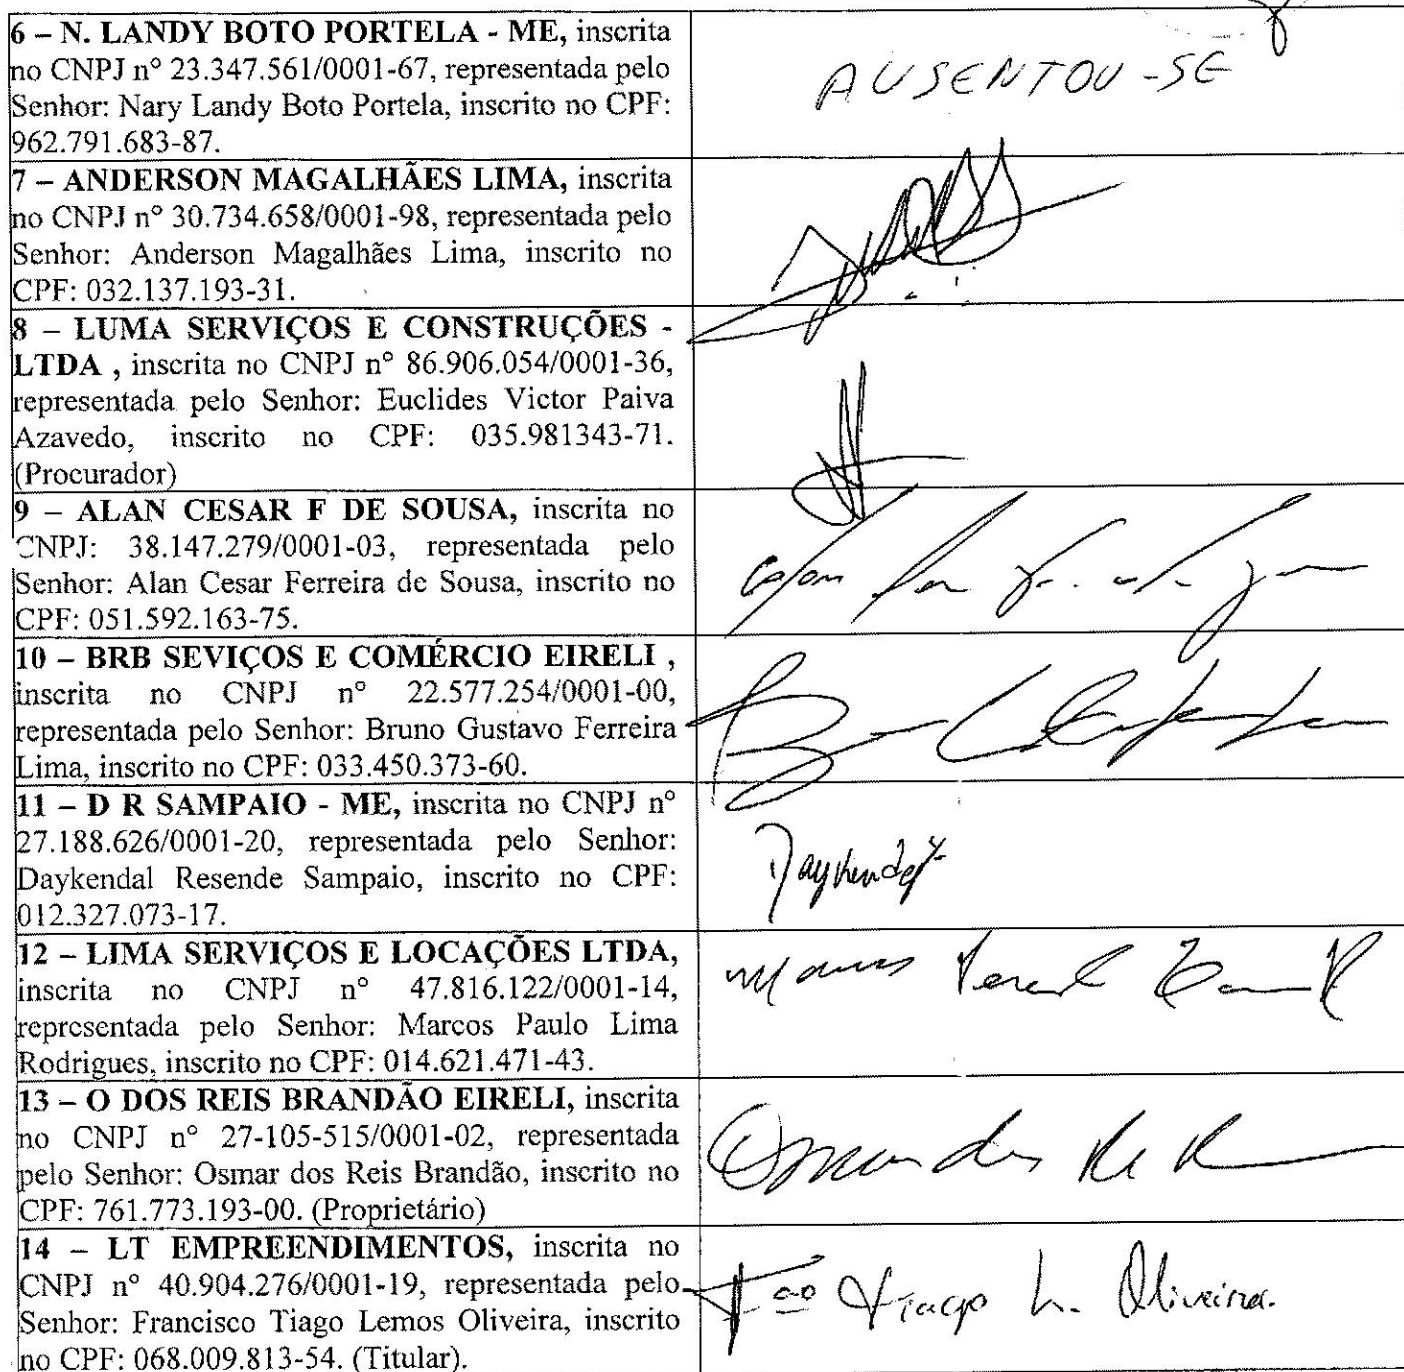 6 – N. LANDY BOTO PORTELA - ME, inscrita
no CNPJ nº 23.347.561/0001-67, representada pelo
Senhor: Nary Landy Boto Portela, inscrito no CPF:
962.791.683-87.
AUSENTOU-SE
7 – ANDERSON MAGALHÃES LIMA, inscrita
no CNPJ nº 30.734.658/0001-98, representada pelo
Senhor: Anderson Magalhães Lima, inscrito no
CPF: 032.137.193-31.
8 – LUMA SERVIÇOS E CONSTRUÇÕES -
LTDA , inscrita no CNPJ nº 86.906.054/0001-36,
representada pelo Senhor: Euclides Victor Paiva
Azavedo, inscrito no CPF: 035.981343-71.
(Procurador)
9 – ALAN CESAR F DE SOUSA, inscrita no
CNPJ: 38.147.279/0001-03, representada pelo
Senhor: Alan Cesar Ferreira de Sousa, inscrito no
CPF: 051.592.163-75.
10 – BRB SEVIÇOS E COMÉRCIO EIRELI ,
inscrita no CNPJ nº 22.577.254/0001-00,
representada pelo Senhor: Bruno Gustavo Ferreira
Lima, inscrito no CPF: 033.450.373-60.
11 – D R SAMPAIO - ME, inscrita no CNPJ nº
27.188.626/0001-20, representada pelo Senhor:
Daykendal Resende Sampaio, inscrito no CPF:
012.327.073-17.
12 – LIMA SERVIÇOS E LOCAÇÕES LTDA,
inscrita no CNPJ nº 47.816.122/0001-14,
representada pelo Senhor: Marcos Paulo Lima
Rodrigues, inscrito no CPF: 014.621.471-43.
13 – O DOS REIS BRANDÃO EIRELI, inscrita
no CNPJ nº 27-105-515/0001-02, representada
pelo Senhor: Osmar dos Reis Brandão, inscrito no
CPF: 761.773.193-00. (Proprietário)
14 – LT EMPREENDIMENTOS, inscrita no
CNPJ nº 40.904.276/0001-19, representada pelo
Senhor: Francisco Tiago Lemos Oliveira, inscrito
no CPF: 068.009.813-54. (Titular).
Fco Tiago L. Oliveira.